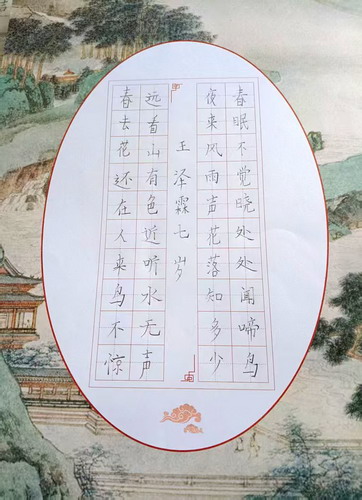 春眠不觉晓处处闻啼鸟
夜来风雨声花落知多少
王泽霖七岁
远看山有色近听水无声
春去花还在人来鸟不惊